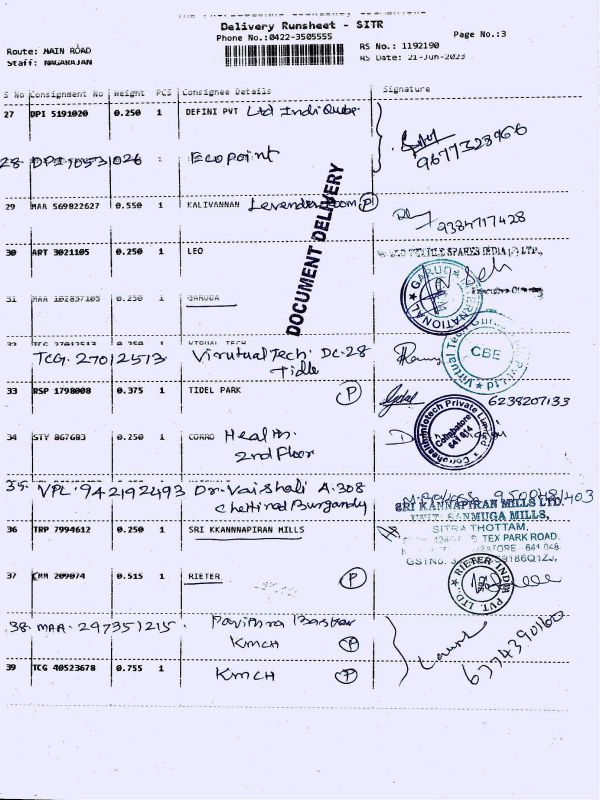 Delivery Runsheet - SITR
Phone No.:0422-3505555
Page No.:3
Route: MAIN ROAD
RS No.: 1192190
Staff: NAGARAJAN
RS Date: 21-Jun-2023
S No Consignment No Weight PCS Consignee Details Signature
27 DPI 5191020 0.250 1 DEFINI PVT Ltd IndiQube
9677328966
28. Ecopoint
DOCUMENT DELIVERY
29 MAA 569822627 0.550 1 KALIVANNAN P
9384717428
30 ART 3021105 0.250 1 LEO
TEXTILE SPARES INDIA (P) LTD.,
31 MAA 102837105 0.250 1 GARUDA
GARUDA INTERNATIONAL
32 TCG 27012513 0.250 1 VIRUAL TECH
TCG. 27012513. Virutual Tech. DC-28
Tidle
CBE
33 RSP 1798008 0.375 1 TIDEL PARK P
6238207133
34 STY 867683 0.250 1 CORRO Health.
2nd Floor
Coimbatore
641 014
35. VPL. 942192493 Dr. Vaishali A.308
Chettinad Burgandy
9500481403
SRI KANNAPIRAN MILLS LTD.
UNIT: SANMUGA MILLS,
SITRA THOTTAM,
TEX PARK ROAD,
36 TRP 7994612 0.250 1 SRI KKANNNAPIRAN MILLS
37 CMM 209074 0.515 1 RIETER P
RIETER INDIA PVT. LTD.
38. MAA. 297351215. Pavithra Baskar
KMCH P
39 TCG 40523678 0.755 1 KMCH P